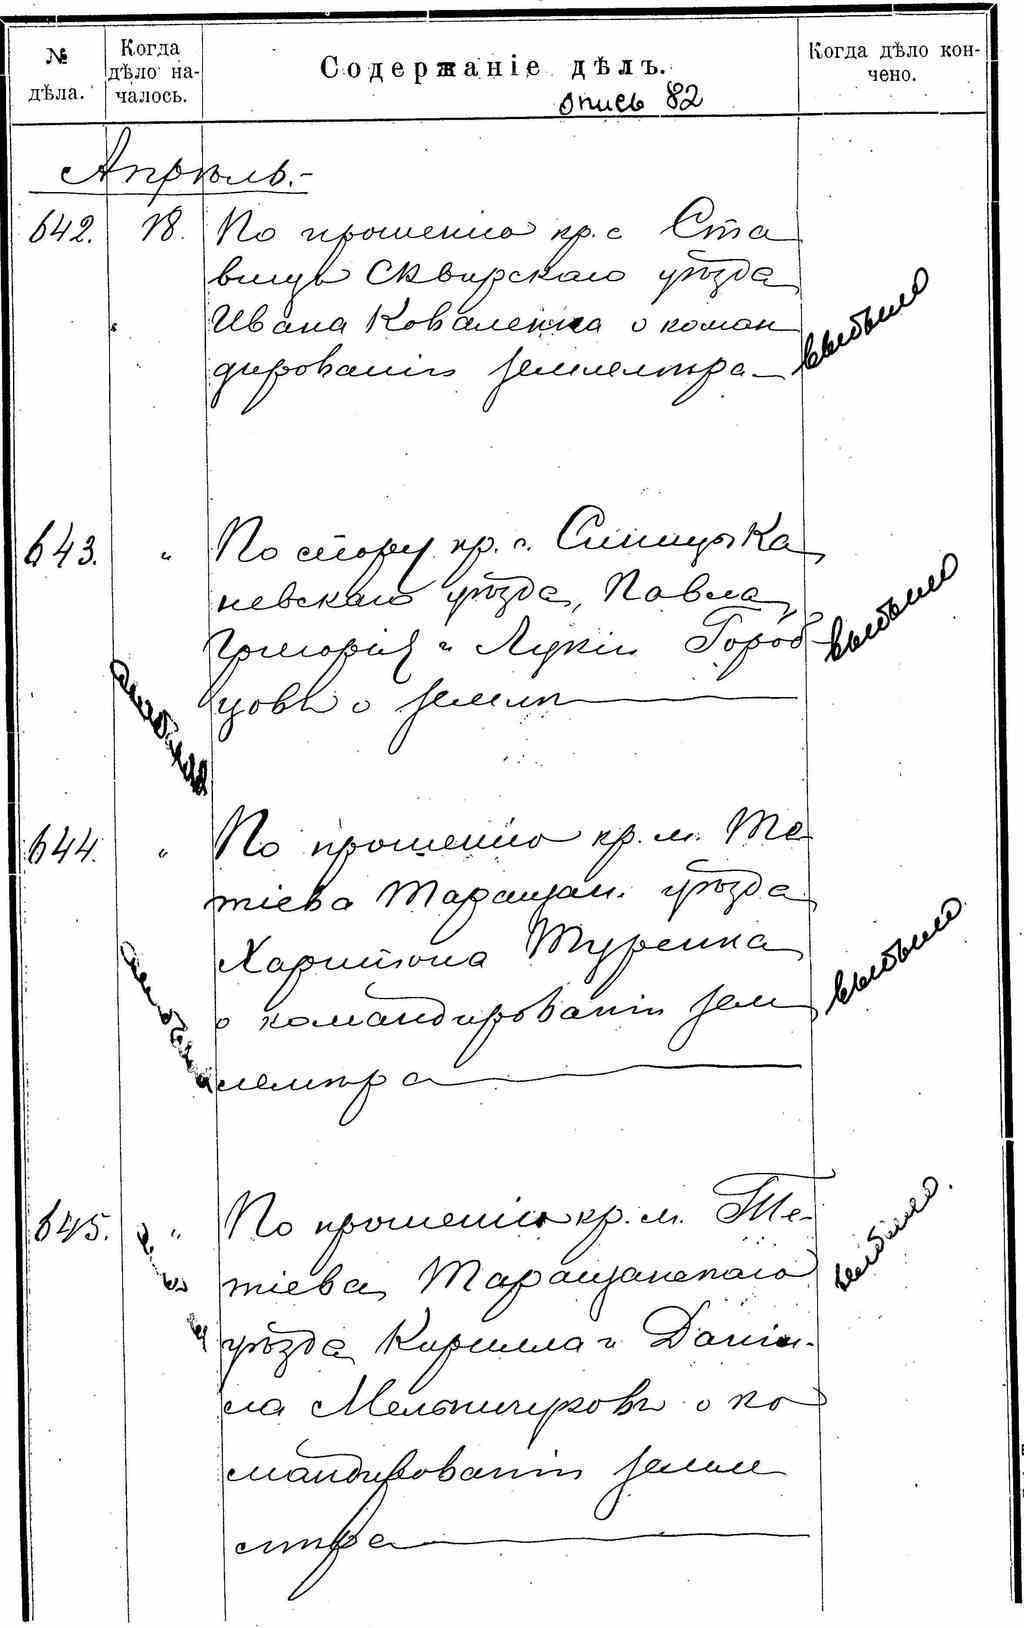 № дѣла.
Когда дѣло началось.
Содержаніе дѣлъ.
Когда дѣло кончено.
опись 82
Апрѣль.-
642. 18. По прошенію кр. с Ста
вищъ Сквирскаго уѣзда
Ивана Коваленка о коман
дированіи землемѣра-
выбыло
643. " По спору кр. с. Синицы Ка
невскаго уѣзда, Павла,
Григорія и Лукіи Гороб
цовъ о землѣ
выбыло
644. " По прошенію кр. м. Те
тіева Таращан. уѣзда
Харитона Туренка
о командированіи зем
лемѣра
выбыло
645. " По прошенію кр. м. Те-
тіева Таращанскаго
уѣзда Кирилла и Даніи-
ла Мельничуковъ о ко
мандированіи земле
мѣра
выбыло.